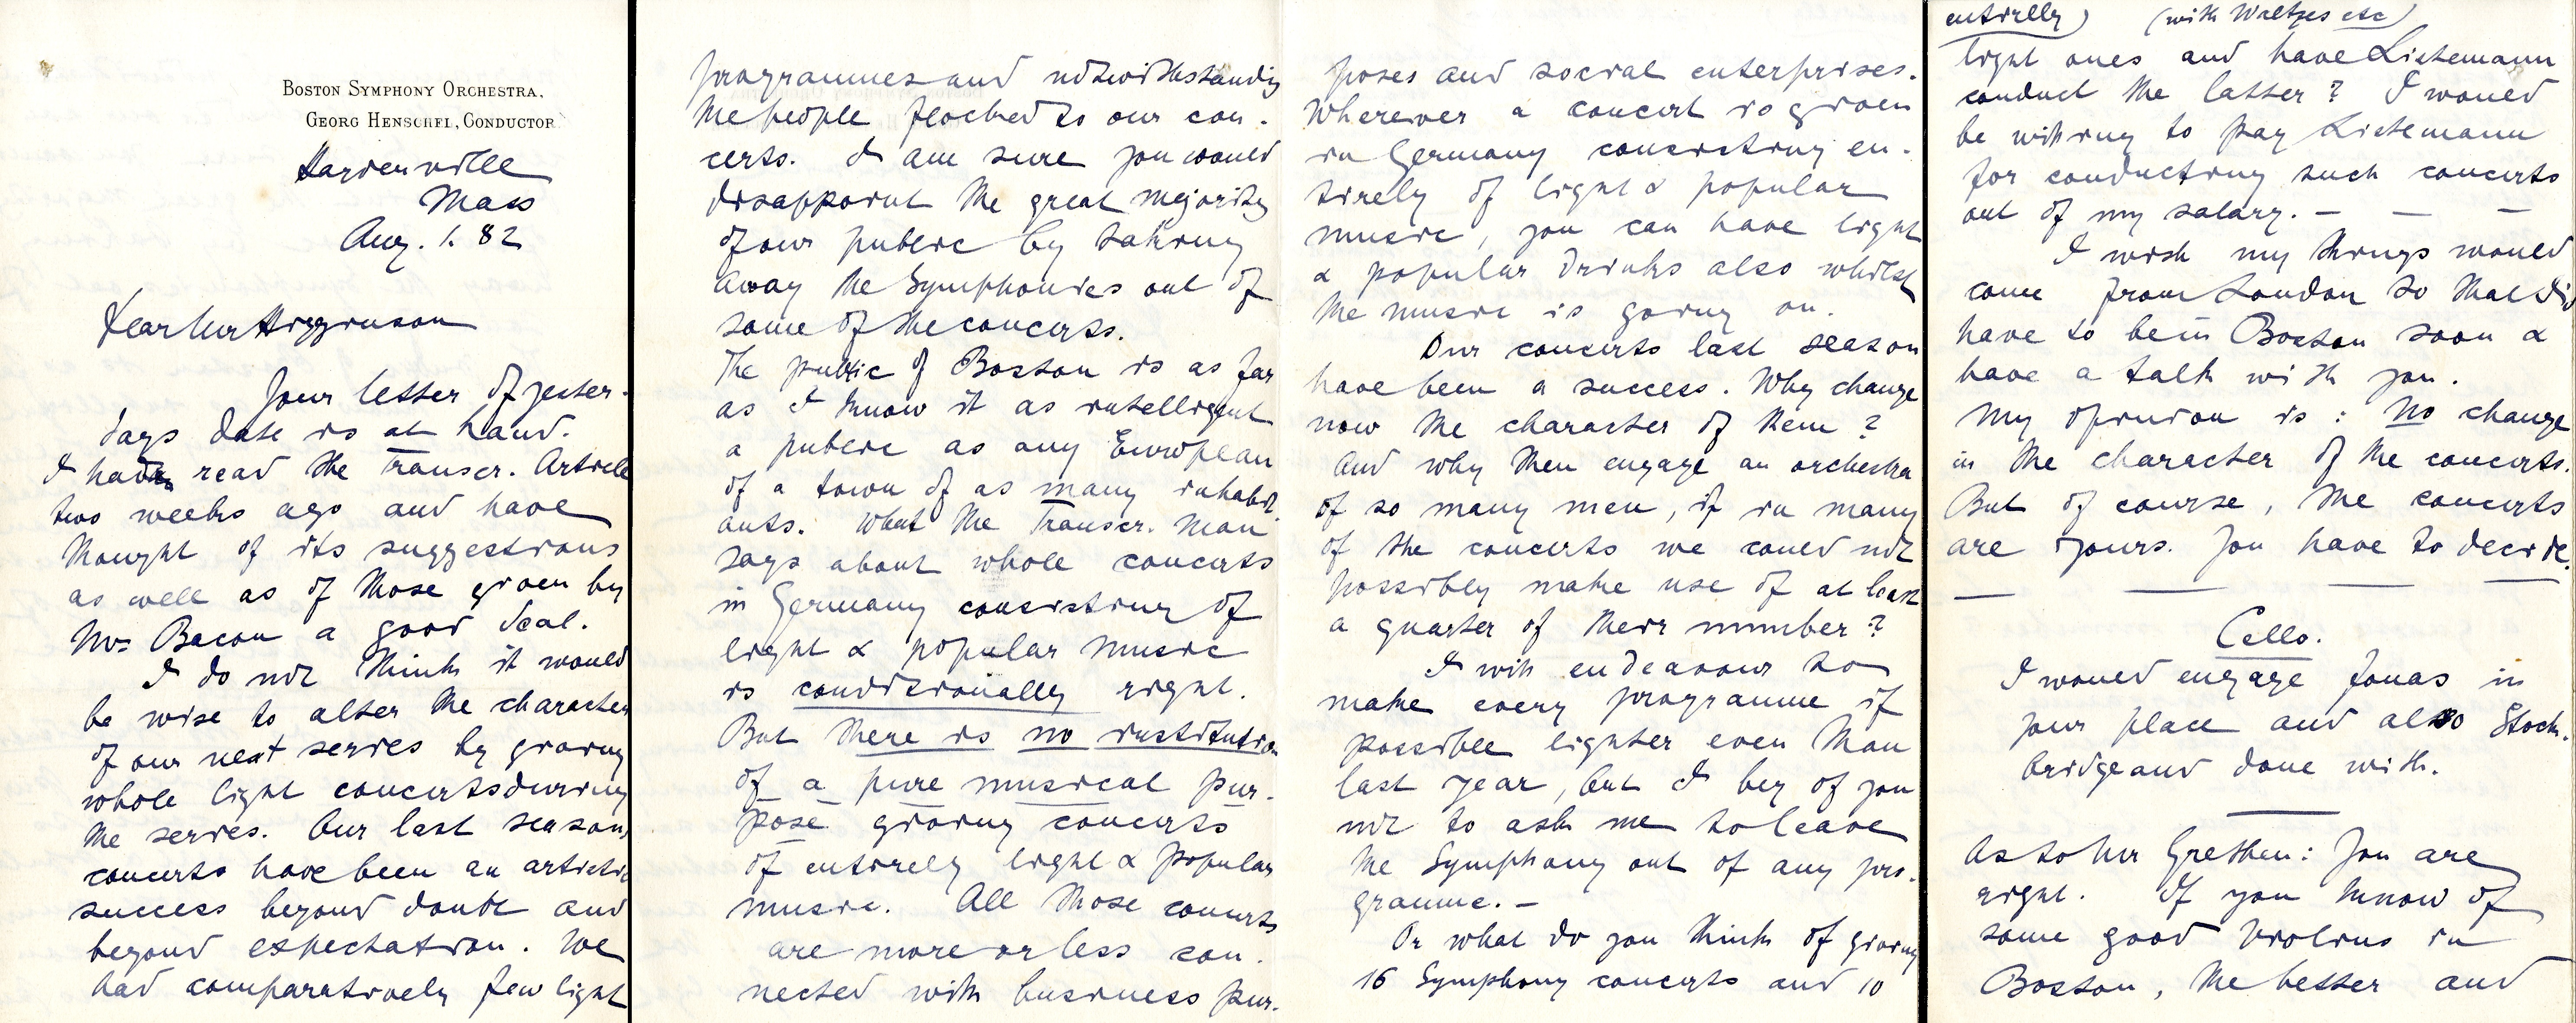 BOSTON SYMPHONY ORCHESTRA,
GEORG HENSCHEL, CONDUCTOR
Harrierville
Mass
Aug. 1. 82
Dear Mr Higginson
Your letter of yester-
days date is at hand.
I have read the Transcr. Article
two weeks ago and have
thought of its suggestions
as well as of those given by
Mr Bacon a good deal.
I do not think it would
be wise to alter the character
of our next series by giving
whole light concerts during
the series. Our last season
concerts have been an artistic
success beyond doubt and
beyond expectation. We
had comparatively few light
programmes and notwithstanding
the people flocked to our con-
certs. I am sure you would
disappoint the great majority
of our public by taking
away the Symphonies out of
some of the concerts.
The public of Boston is as far
as I know it as intelligent
a public as any European
of a town of as many inhabit-
ants. What the Transcr. man
says about whole concerts
in Germany consisting of
light & popular music
is conditionally right.
But there is no institution
of a pure musical pur-
pose giving concerts
of entirely light & popular
music. All those concerts
are more or less con-
nected with business pur-
poses and social enterprises.
Wherever a concert is given
in Germany consisting en-
tirely of light & popular
music, you can have light
& popular drinks also whilst
the music is going on.
Our concerts last season
have been a success. Why change
now the character of them?
And why then engage an orchestra
of so many men, if in many
of the concerts we could not
possibly make use of at least
a quarter of their number?
I will endeavour to
make every programme if
possible lighter even than
last year, but I beg of you
not to ask me to leave
the Symphony out of any pro-
gramme. —
Or what do you think of giving
16 Symphony concerts and 10
entirely) (with Waltzes etc)
light ones and have Listemann
conduct the latter? I would
be willing to pay Listemann
for conducting such concerts
out of my salary. — — —
I wish my things would
come from London so that I'd
have to be in Boston soon &
have a talk with you.
My opinion is: No change
in the character of the concerts.
But of course, the concerts
are yours. You have to decide.
Cello.
I would engage Jonas in
your place and also Stock-
bridge and done with.
As to Mr Grethen: You are
right. If you know of
some good Violins in
Boston, the better and